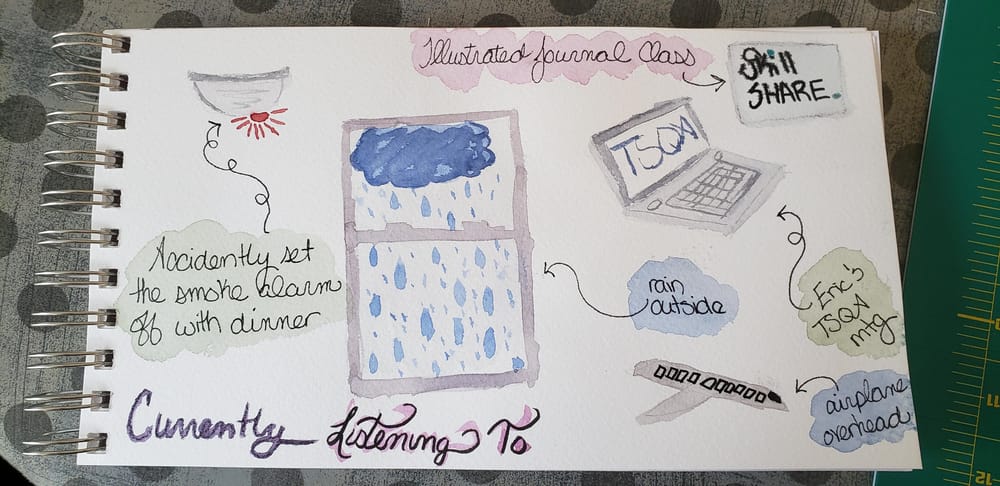 Illustrated Journal Class
Skill
SHARE.
TSQA
Accidently set
the smoke alarm
off with dinner
rain
outside
Eric's
TSQA
mtg
airplane
overhead
Currently Listening To
11
12